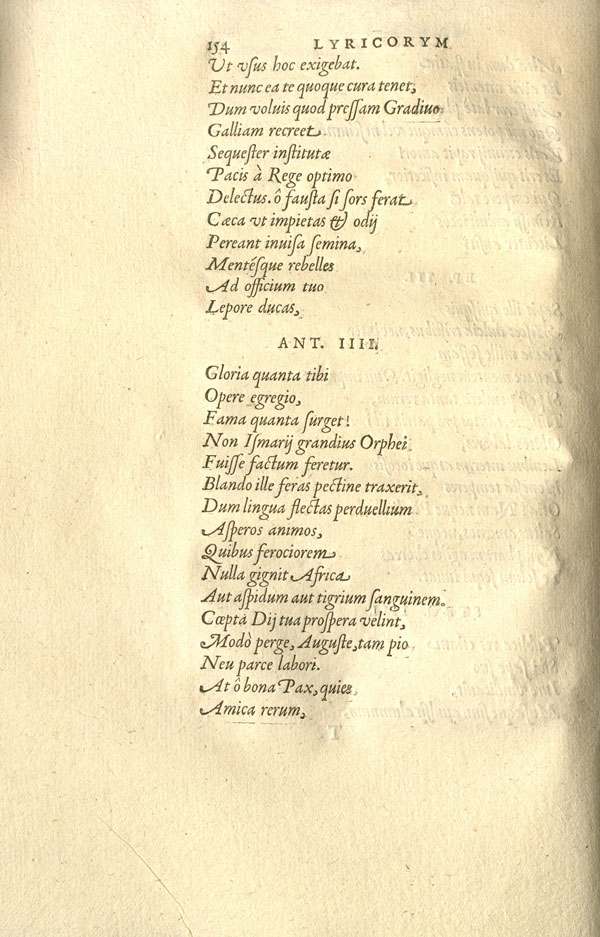 154 LYRICORVM
Ut vſus hoc exigebat.
Et nunc ea te quoque cura tenet,
Dum voluis quod preſſam Gradiuo
Galliam recreet
Sequeſter inſtitutæ
Pacis à Rege optimo
Delectus. ô fauſta ſi ſors ferat
Cæca vt impietas & odij
Pereant inuiſa ſemina,
Mentéſque rebelles
Ad officium tuo
Lepore ducas,
ANT. IIII.
Gloria quanta tibi
Opere egregio,
Fama quanta ſurget!
Non Iſmarij grandius Orphei
Fuiſſe factum feretur.
Blando ille feras pectine traxerit,
Dum lingua flectas perduellium
Aſperos animos,
Quibus ferociorem
Nulla gignit Africa
Aut aſpidum aut tigrium ſanguinem.
Cœpta Dij tua proſpera velint,
Modò perge, Auguſte, tam pio
Neu parce labori.
At ô bona Pax, quies
Amica rerum,